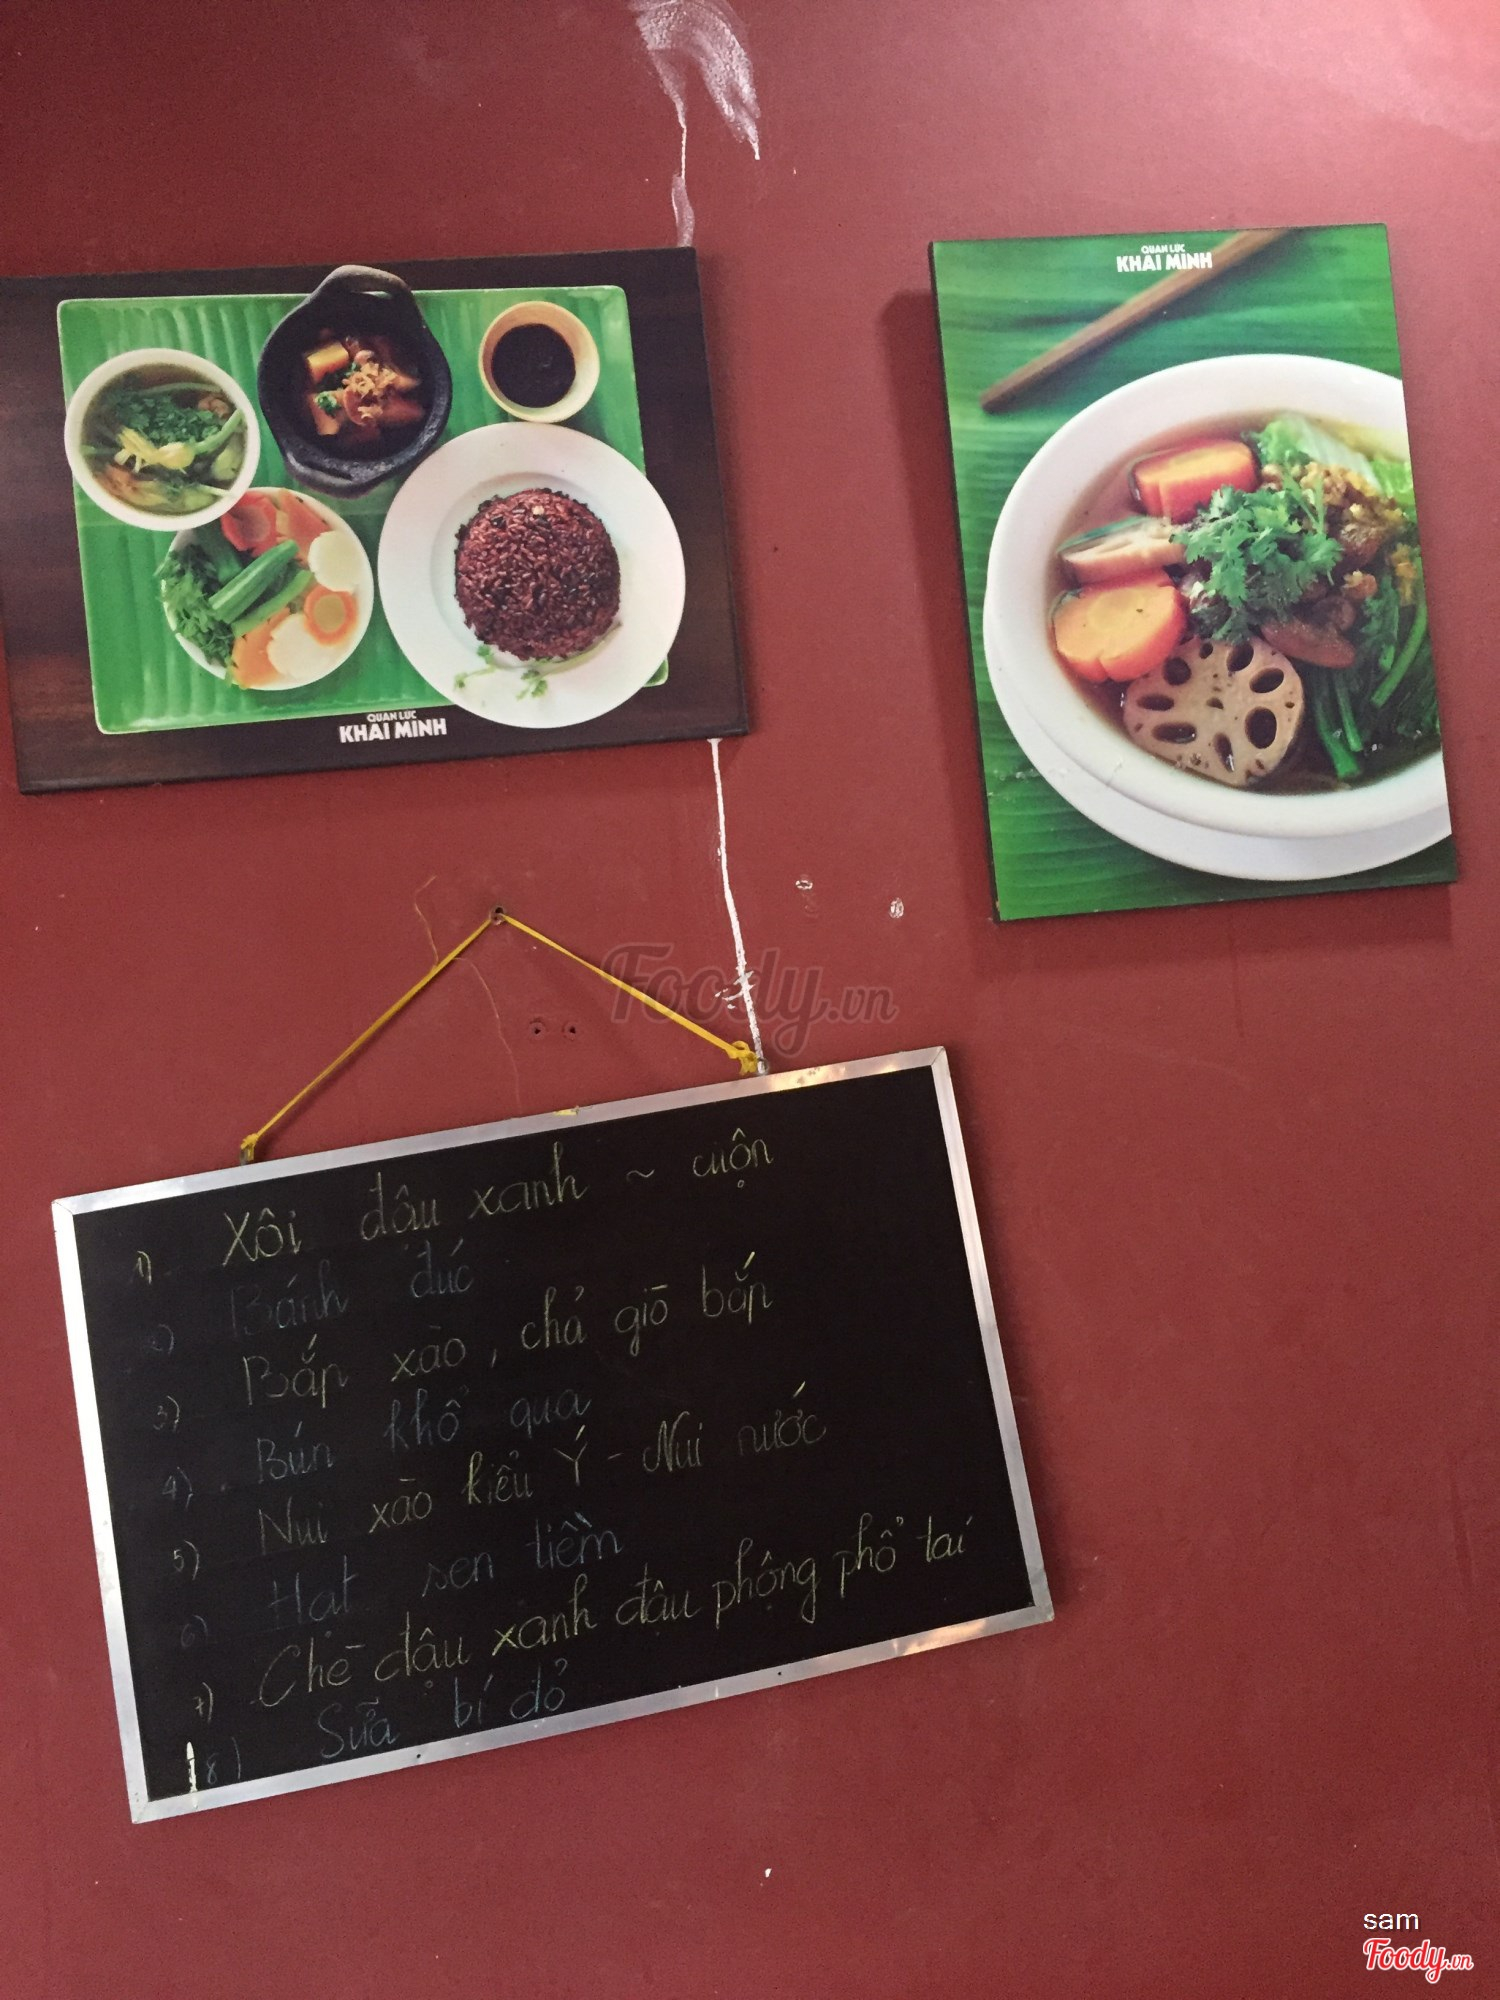 QUÁN LỨC
KHẢI MINH
QUÁN LỨC
KHẢI MINH
Foody.vn
1) Xôi đậu xanh ~ cuộn
2) Bánh đúc
3) Bắp xào, chả giò bắp
4) Bún khổ qua
5) Nui xào kiểu Ý - Nui nước
6) Hạt sen tiềm
7) Chè đậu xanh đậu phộng phổ tai
8) Sữa bí đỏ
sam
Foody.vn